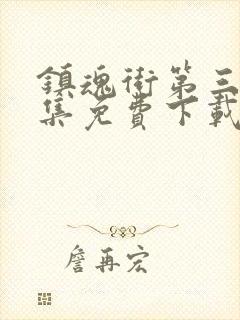 鎮魂街第三
集免費下載
詹再宏